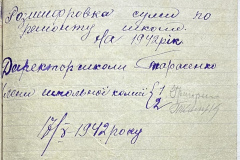 Розшифровка сумы по
ремонту школи
На 1942 рік
Директор школи Тарасенко
Члени школьной комісії { 1
2
17/X 1942 року